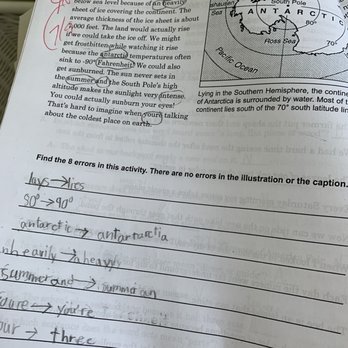 below sea level because of an heavily
sheet of ice covering the continent. The
average thickness of the ice sheet is about
6,000 feet. The land would actually rise
if we could take the ice off. We might
get frostbitten while watching it rise
because the antarctic temperatures often
sink to -90° Fahrenheit. We could also
get sunburned. The sun never sets in
the summer and the South Pole's high
altitude makes the sunlight very intense.
You could actually sunburn your eyes!
That's hard to imagine when youre talking
about the coldest place on earth.
South Pole
90°
ANTARCTIC
Ross Sea
70°
Pacific Ocean
Lying in the Southern Hemisphere, the contine
of Antarctica is surrounded by water. Most of t
continent lies south of the 70° south latitude lin
Find the 8 errors in this activity. There are no errors in the illustration or the caption.
lays → lies
80° → 90°
antarctic → antartarctia
heavily → heavy
summer and →
youre → you're
our → three